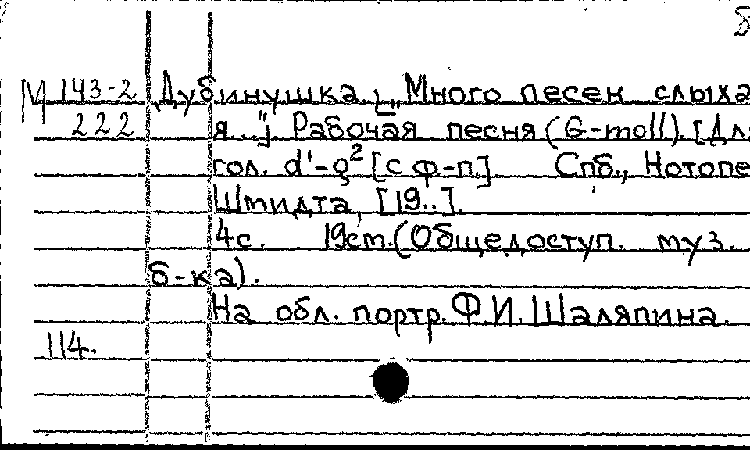 М 143-2 Дубинушка. ["Много песен слыха
222 я..."] Рабочая песня (G-moll). [Для
гол. d'-g² [с ф-п]. Спб., Нотопе
Шмидта, [19..].
4с. 19см. (Общедоступ. муз.
б-ка).
На обл. портр. Ф.И. Шаляпина.
114.